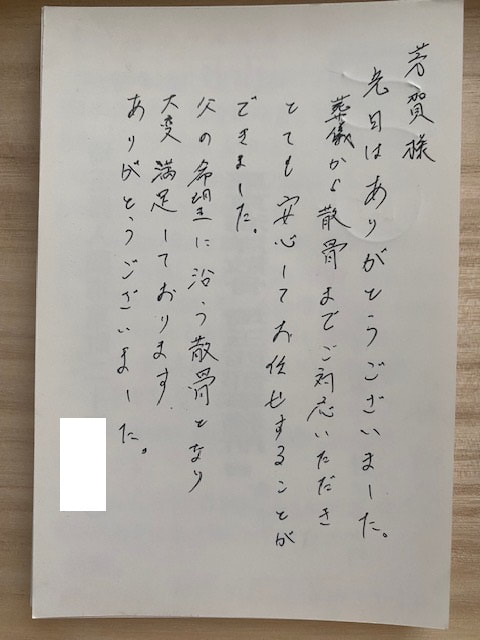 芳賀様
先日はありがとうございました。
葬儀から散骨までご対応いただき
とても安心してお任せすることが
できました。
父の希望に沿う散骨となり
大変満足しております.
ありがとうございました。